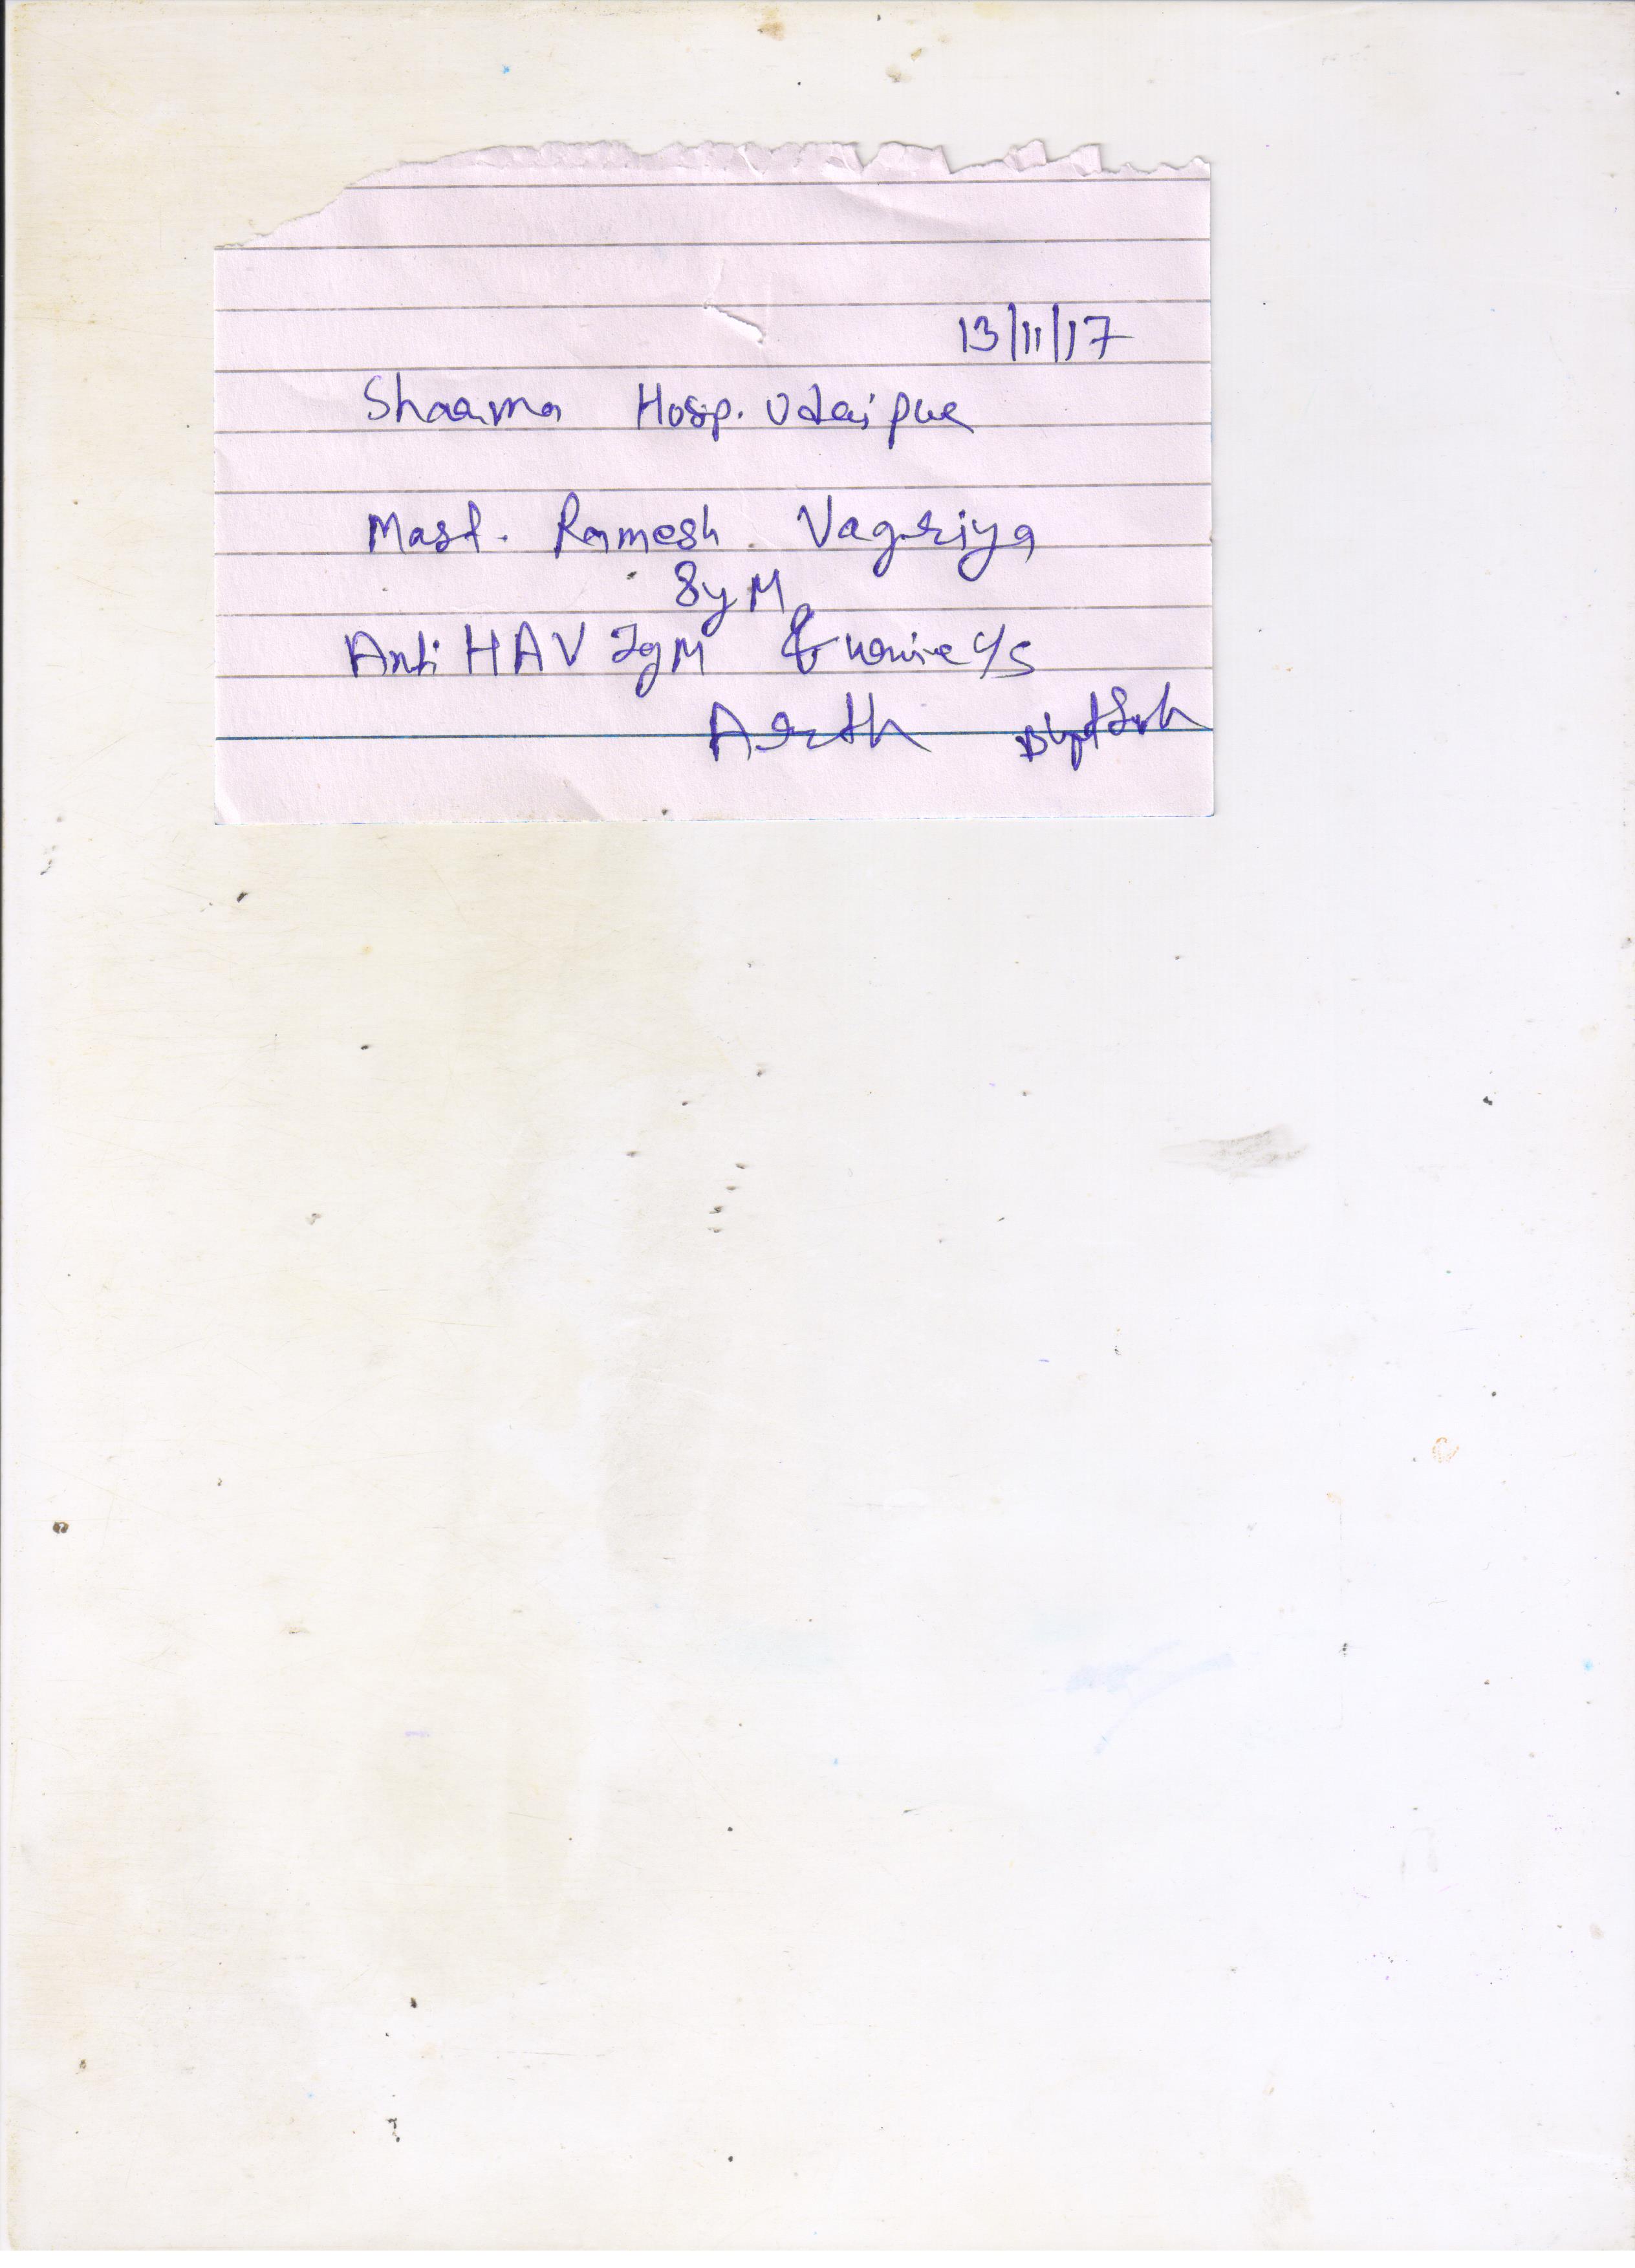 13/11/17
Sharma Hosp. Udaipur
Mast. Ramesh Vagriya
8y M
Anti HAV IgM & urine c/s
Arth